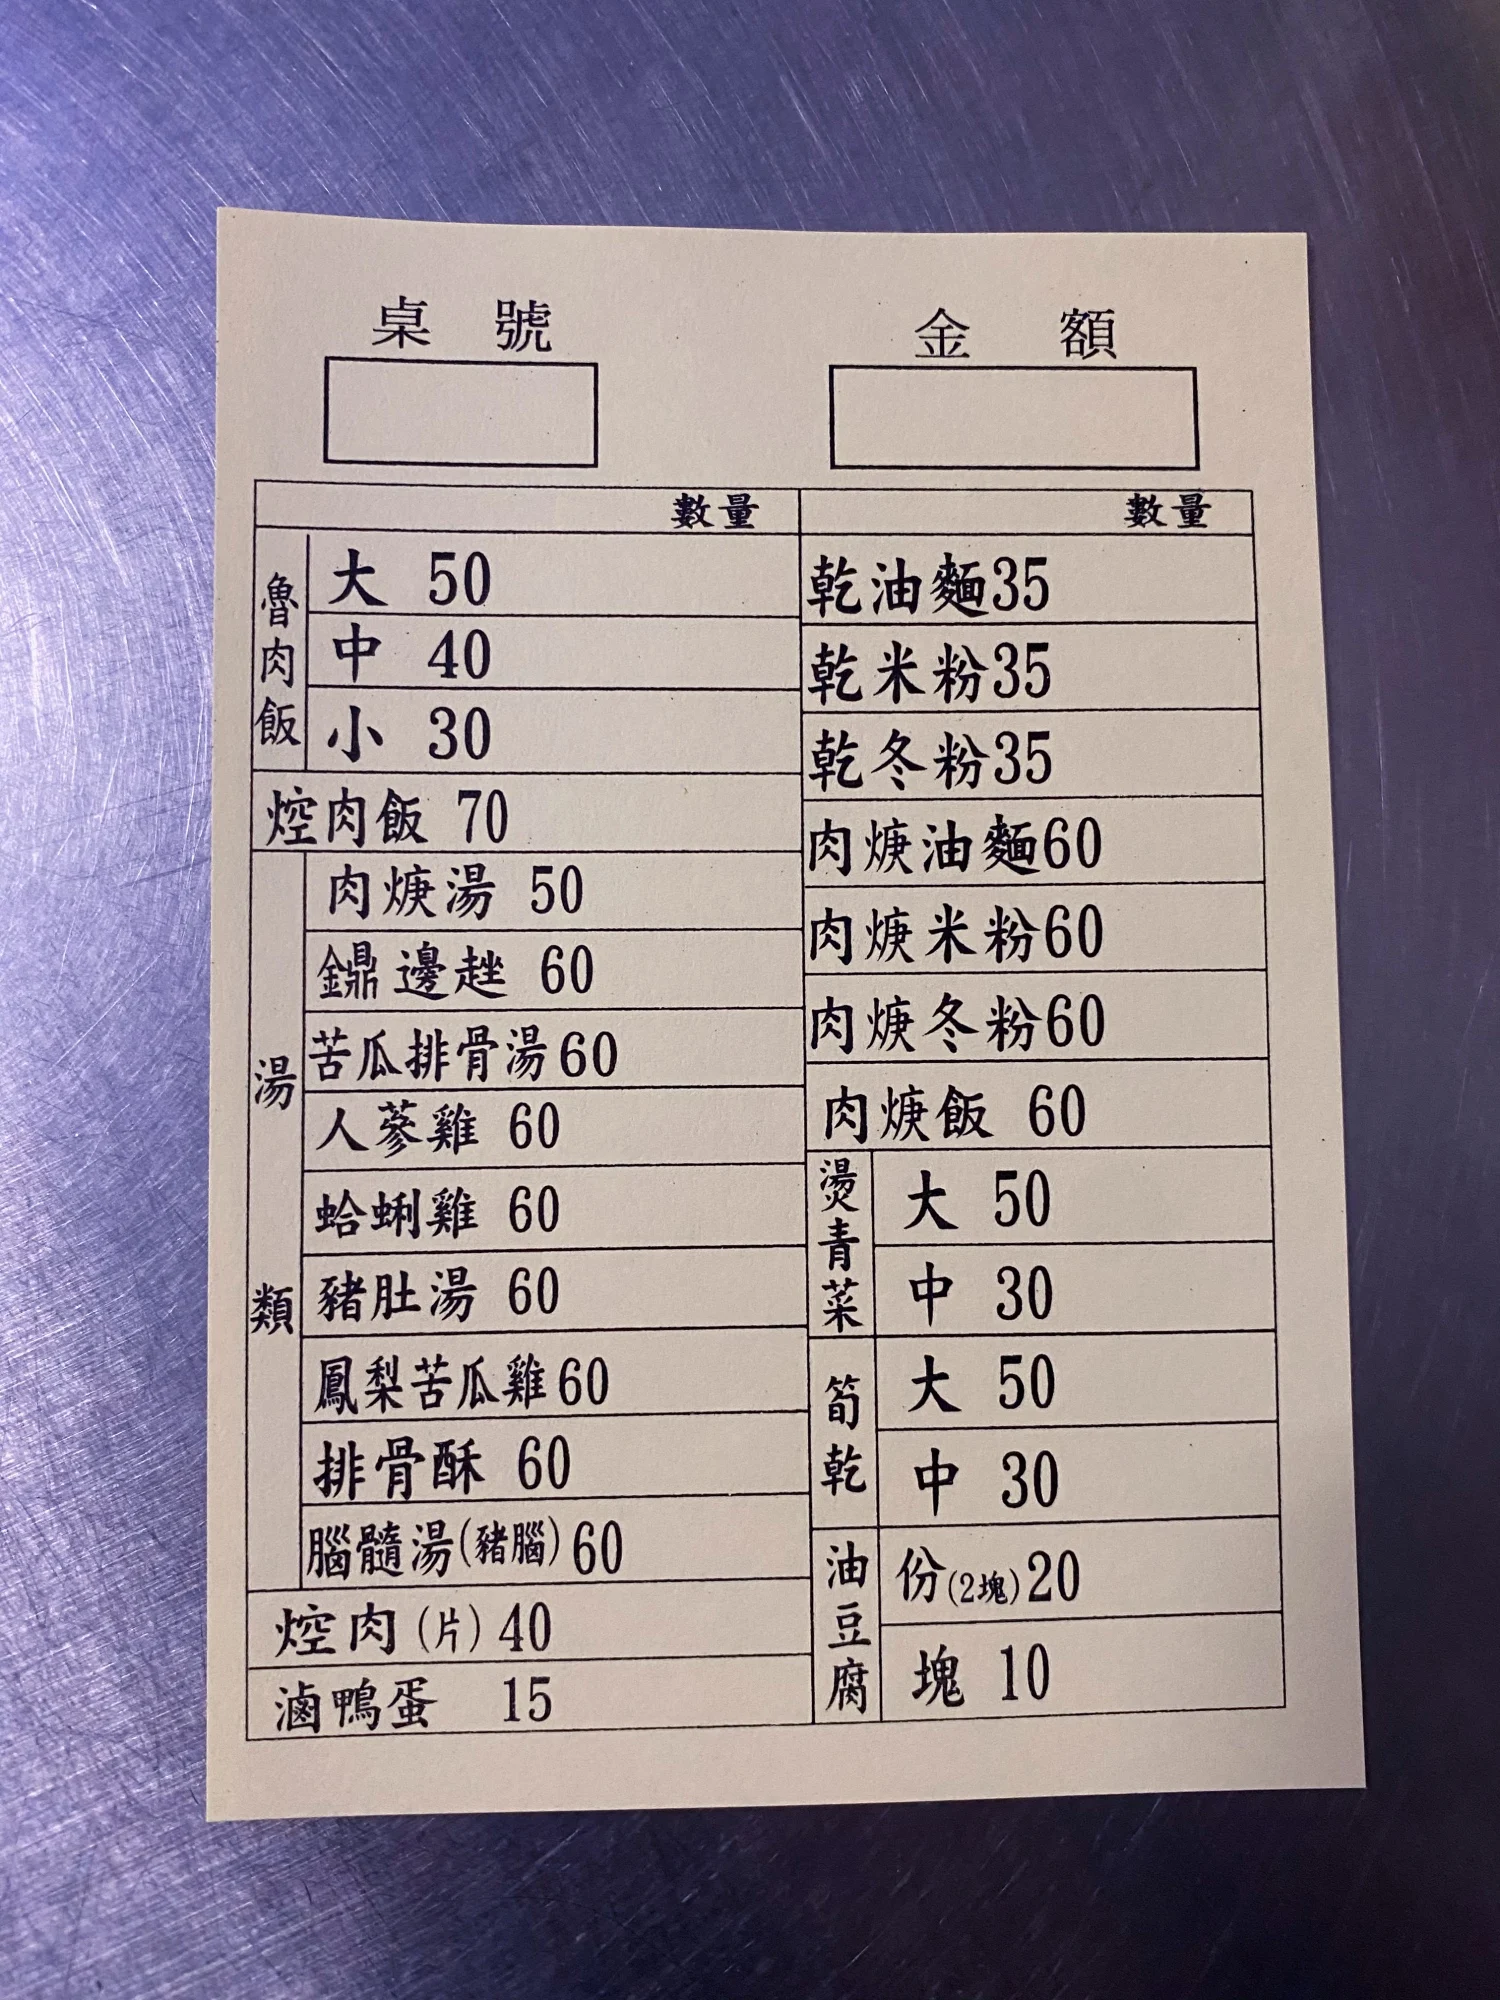 桌號
金額
數量
魯肉飯
大 50
中 40
小 30
焢肉飯 70
湯類
肉焿湯 50
鐤邊趖 60
苦瓜排骨湯60
人蔘雞 60
蛤蜊雞 60
豬肚湯 60
鳳梨苦瓜雞60
排骨酥 60
腦髓湯(豬腦)60
焢肉(片)40
滷鴨蛋 15
數量
乾油麵35
乾米粉35
乾冬粉35
肉焿油麵60
肉焿米粉60
肉焿冬粉60
肉焿飯 60
燙青菜
大 50
中 30
筍乾
大 50
中 30
油豆腐
份(2塊)20
塊 10